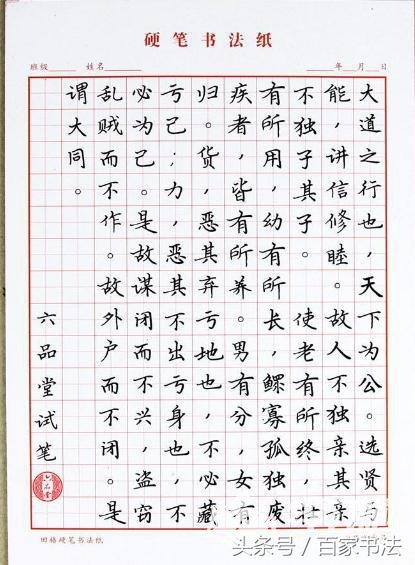 硬笔书法纸
班级 姓名 年 月 日
大道之行也，天下为公。选贤与
能，讲信修睦。故人不独亲其亲
不独子其子。使老有所终，壮
有所用，幼有所长，鳏寡孤独，废
疾者，皆有所养。男有分，女有
归。货，恶其弃亏地也，不必藏
亏己；力，恶其不出亏身也，不
必为己。是故谋闭而不兴，盗窃
乱贼而不作。故外户而不闭。是
谓大同。
六品堂试笔
六品堂
田格硬笔书法纸
头条号 / 百家书法